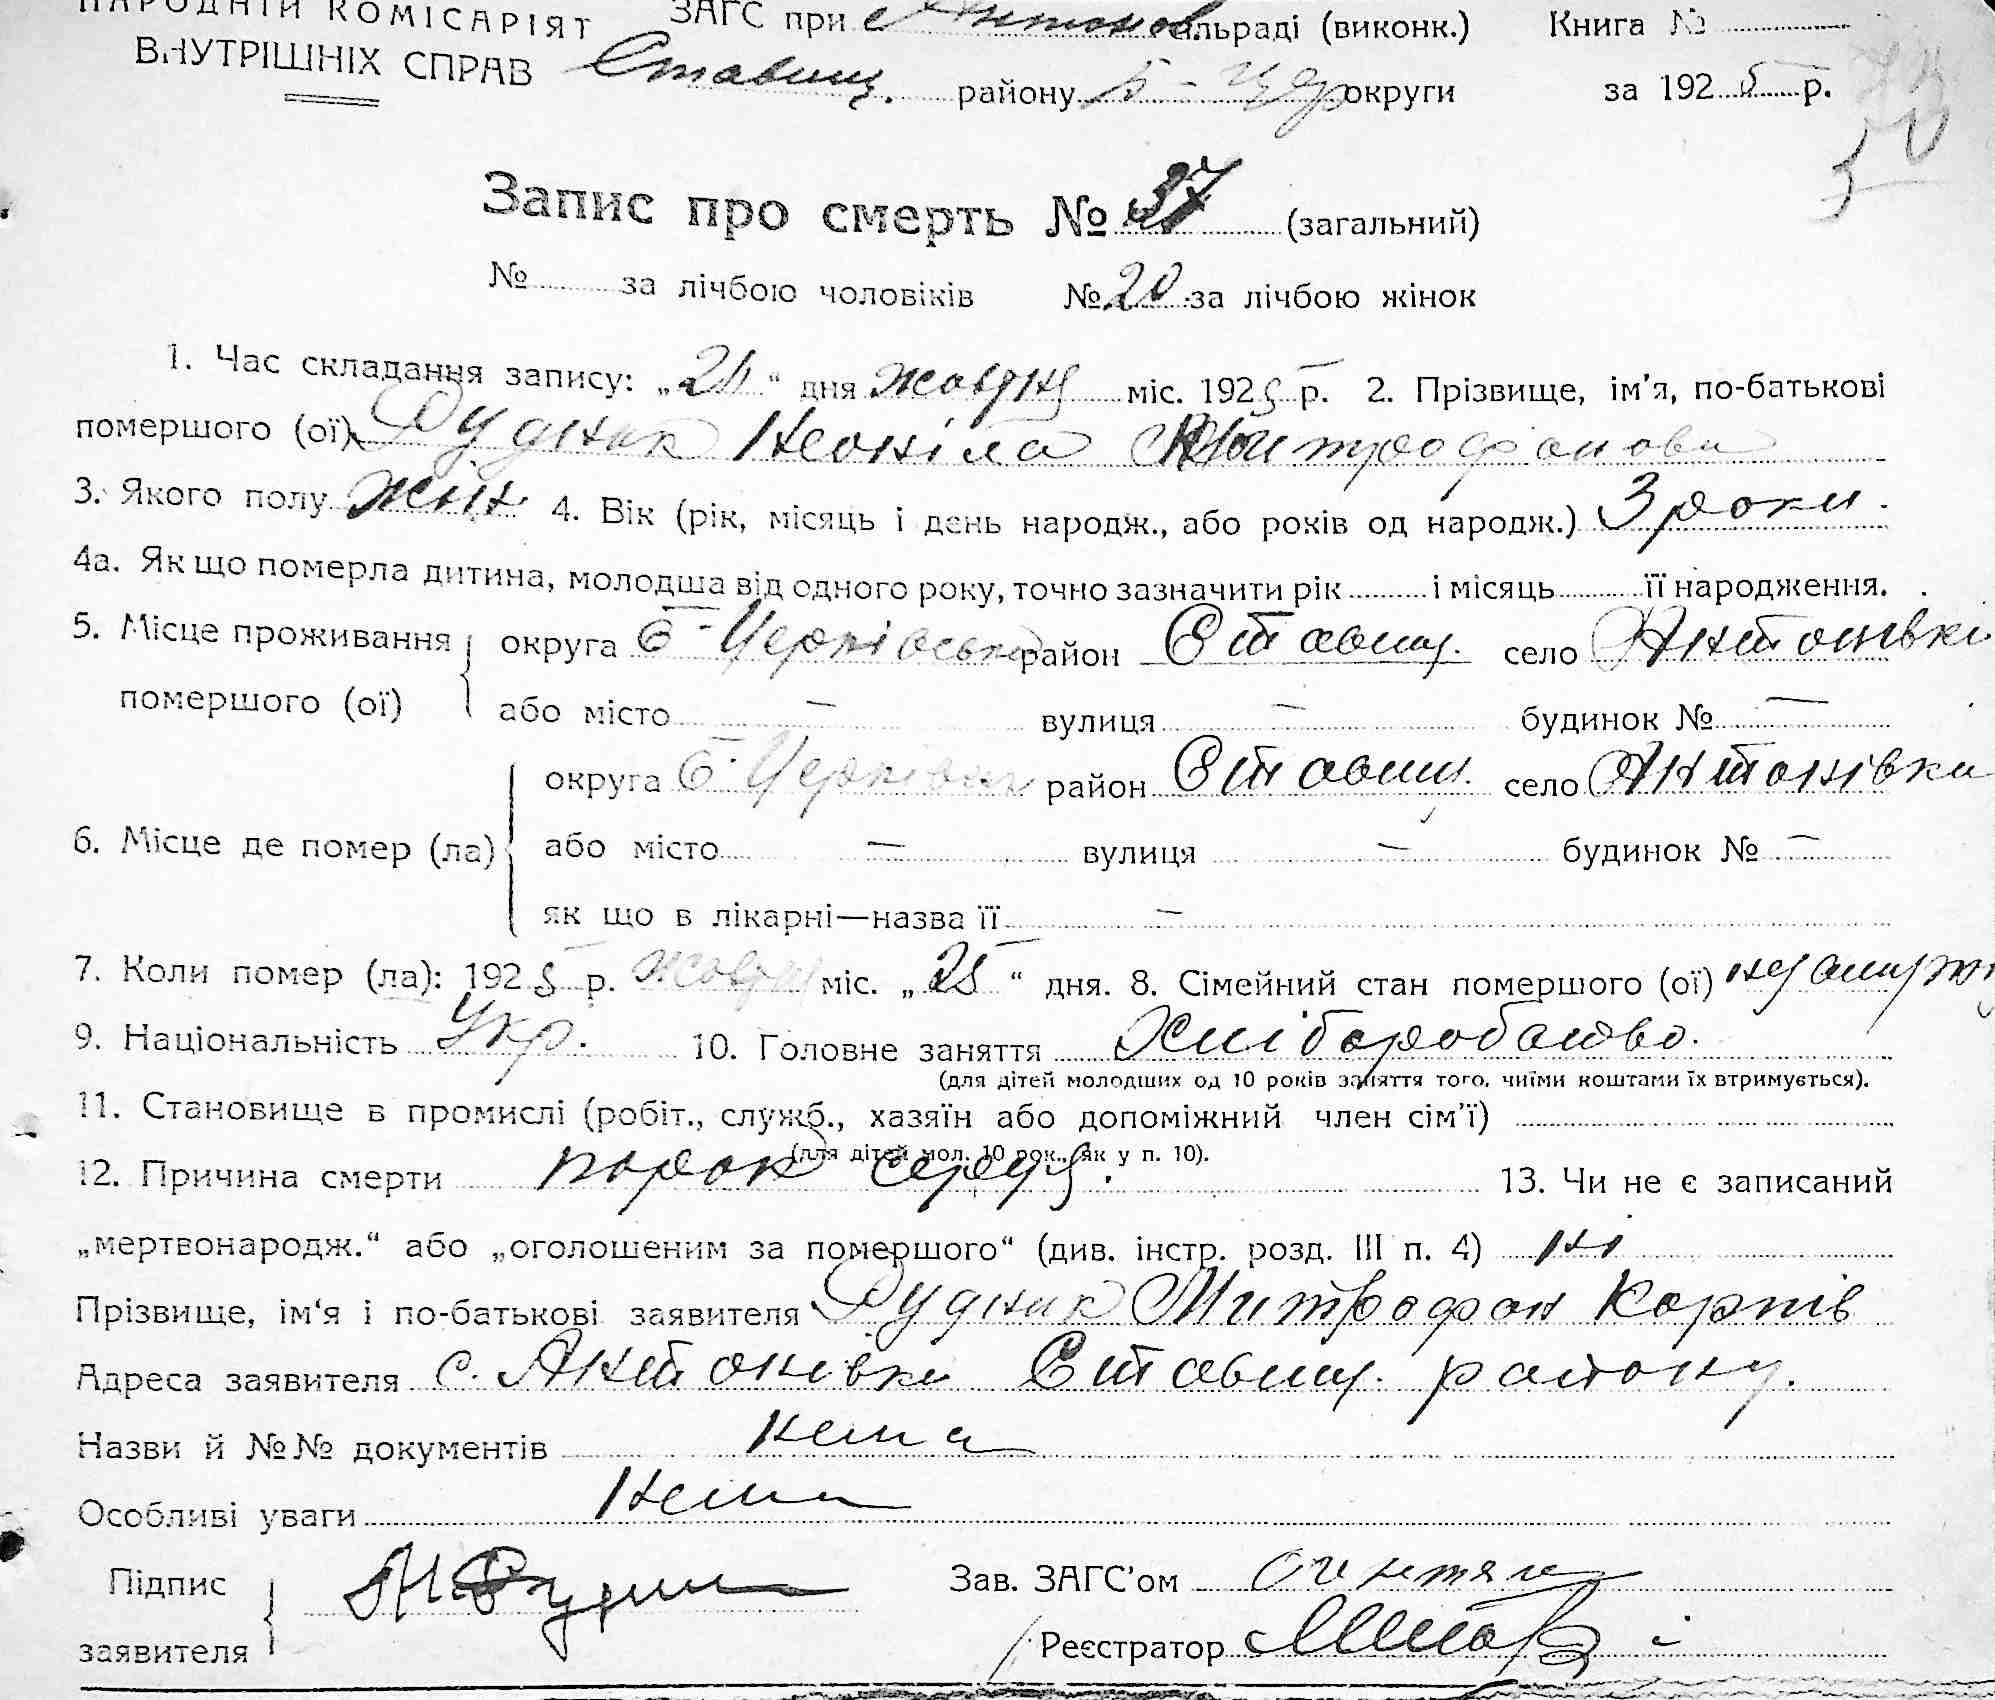 НАРОДНІЙ КОМІСАРІЯТ ЗАГС при Антонов. сільраді (виконк.) Книга №
ВНУТРІШНІХ СПРАВ Ставищ. району Б-Цер округи за 1925 р.
Запис про смерть № 37 (загальний)
№ за лічбою чоловіків № 20 за лічбою жінок
1. Час складання запису: „ “ дня жовтня міс. 1925 р. 2. Прізвище, ім’я, по-батькові
помершого (ої) Рудник Неоніла Митрофанова
3. Якого полу жін 4. Вік (рік, місяць і день народж., або років од народж.) 3 роки.
4а. Як що померла дитина, молодша від одного року, точно зазначити рік і місяць її народження.
5. Місце проживання округа Б-Церківська район Ставищ. село Антонівка
помершого (ої) або місто — вулиця — будинок № —
округа Б-Церківськ район Ставищ. село Антонівка
6. Місце де помер (ла) або місто — вулиця — будинок № —
як що в лікарні—назва її —
7. Коли помер (ла): 1925 р. жовтн міс. „25“ дня. 8. Сімейний стан помершого (ої)
9. Національність Укр. 10. Головне заняття Хліборобство.
(для дітей молодших од 10 років заняття того, чиїми коштами їх втримується).
11. Становище в промислі (робіт., служб., хазяїн або допоміжний член сім’ї)
(для дітей мол. 10 рок., як у п. 10).
12. Причина смерти порок серця. 13. Чи не є записаний
„мертвонародж.“ або „оголошеним за помершого“ (див. інстр. розд. III п. 4) ні
Прізвище, ім‘я і по-батькові заявителя Рудник Митрофан Корнів
Адреса заявителя с. Антонівка Ставищ. району.
Назви й №№ документів нема
Особливі уваги нема
Підпис Зав. ЗАГС’ом
заявителя Реєстратор